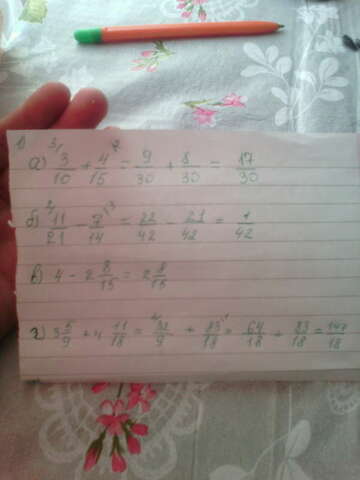 1)
а) 3/10 + 4/15 = 9/30 + 8/30 = 17/30
б) 11/21 - 9/14 = 22/42 - 21/42 = 1/42
в) 4 - 2 8/15 = 2 8/15
г) 3 5/9 + 4 11/18 = 32/9 + 83/18 = 64/18 + 83/18 = 147/18